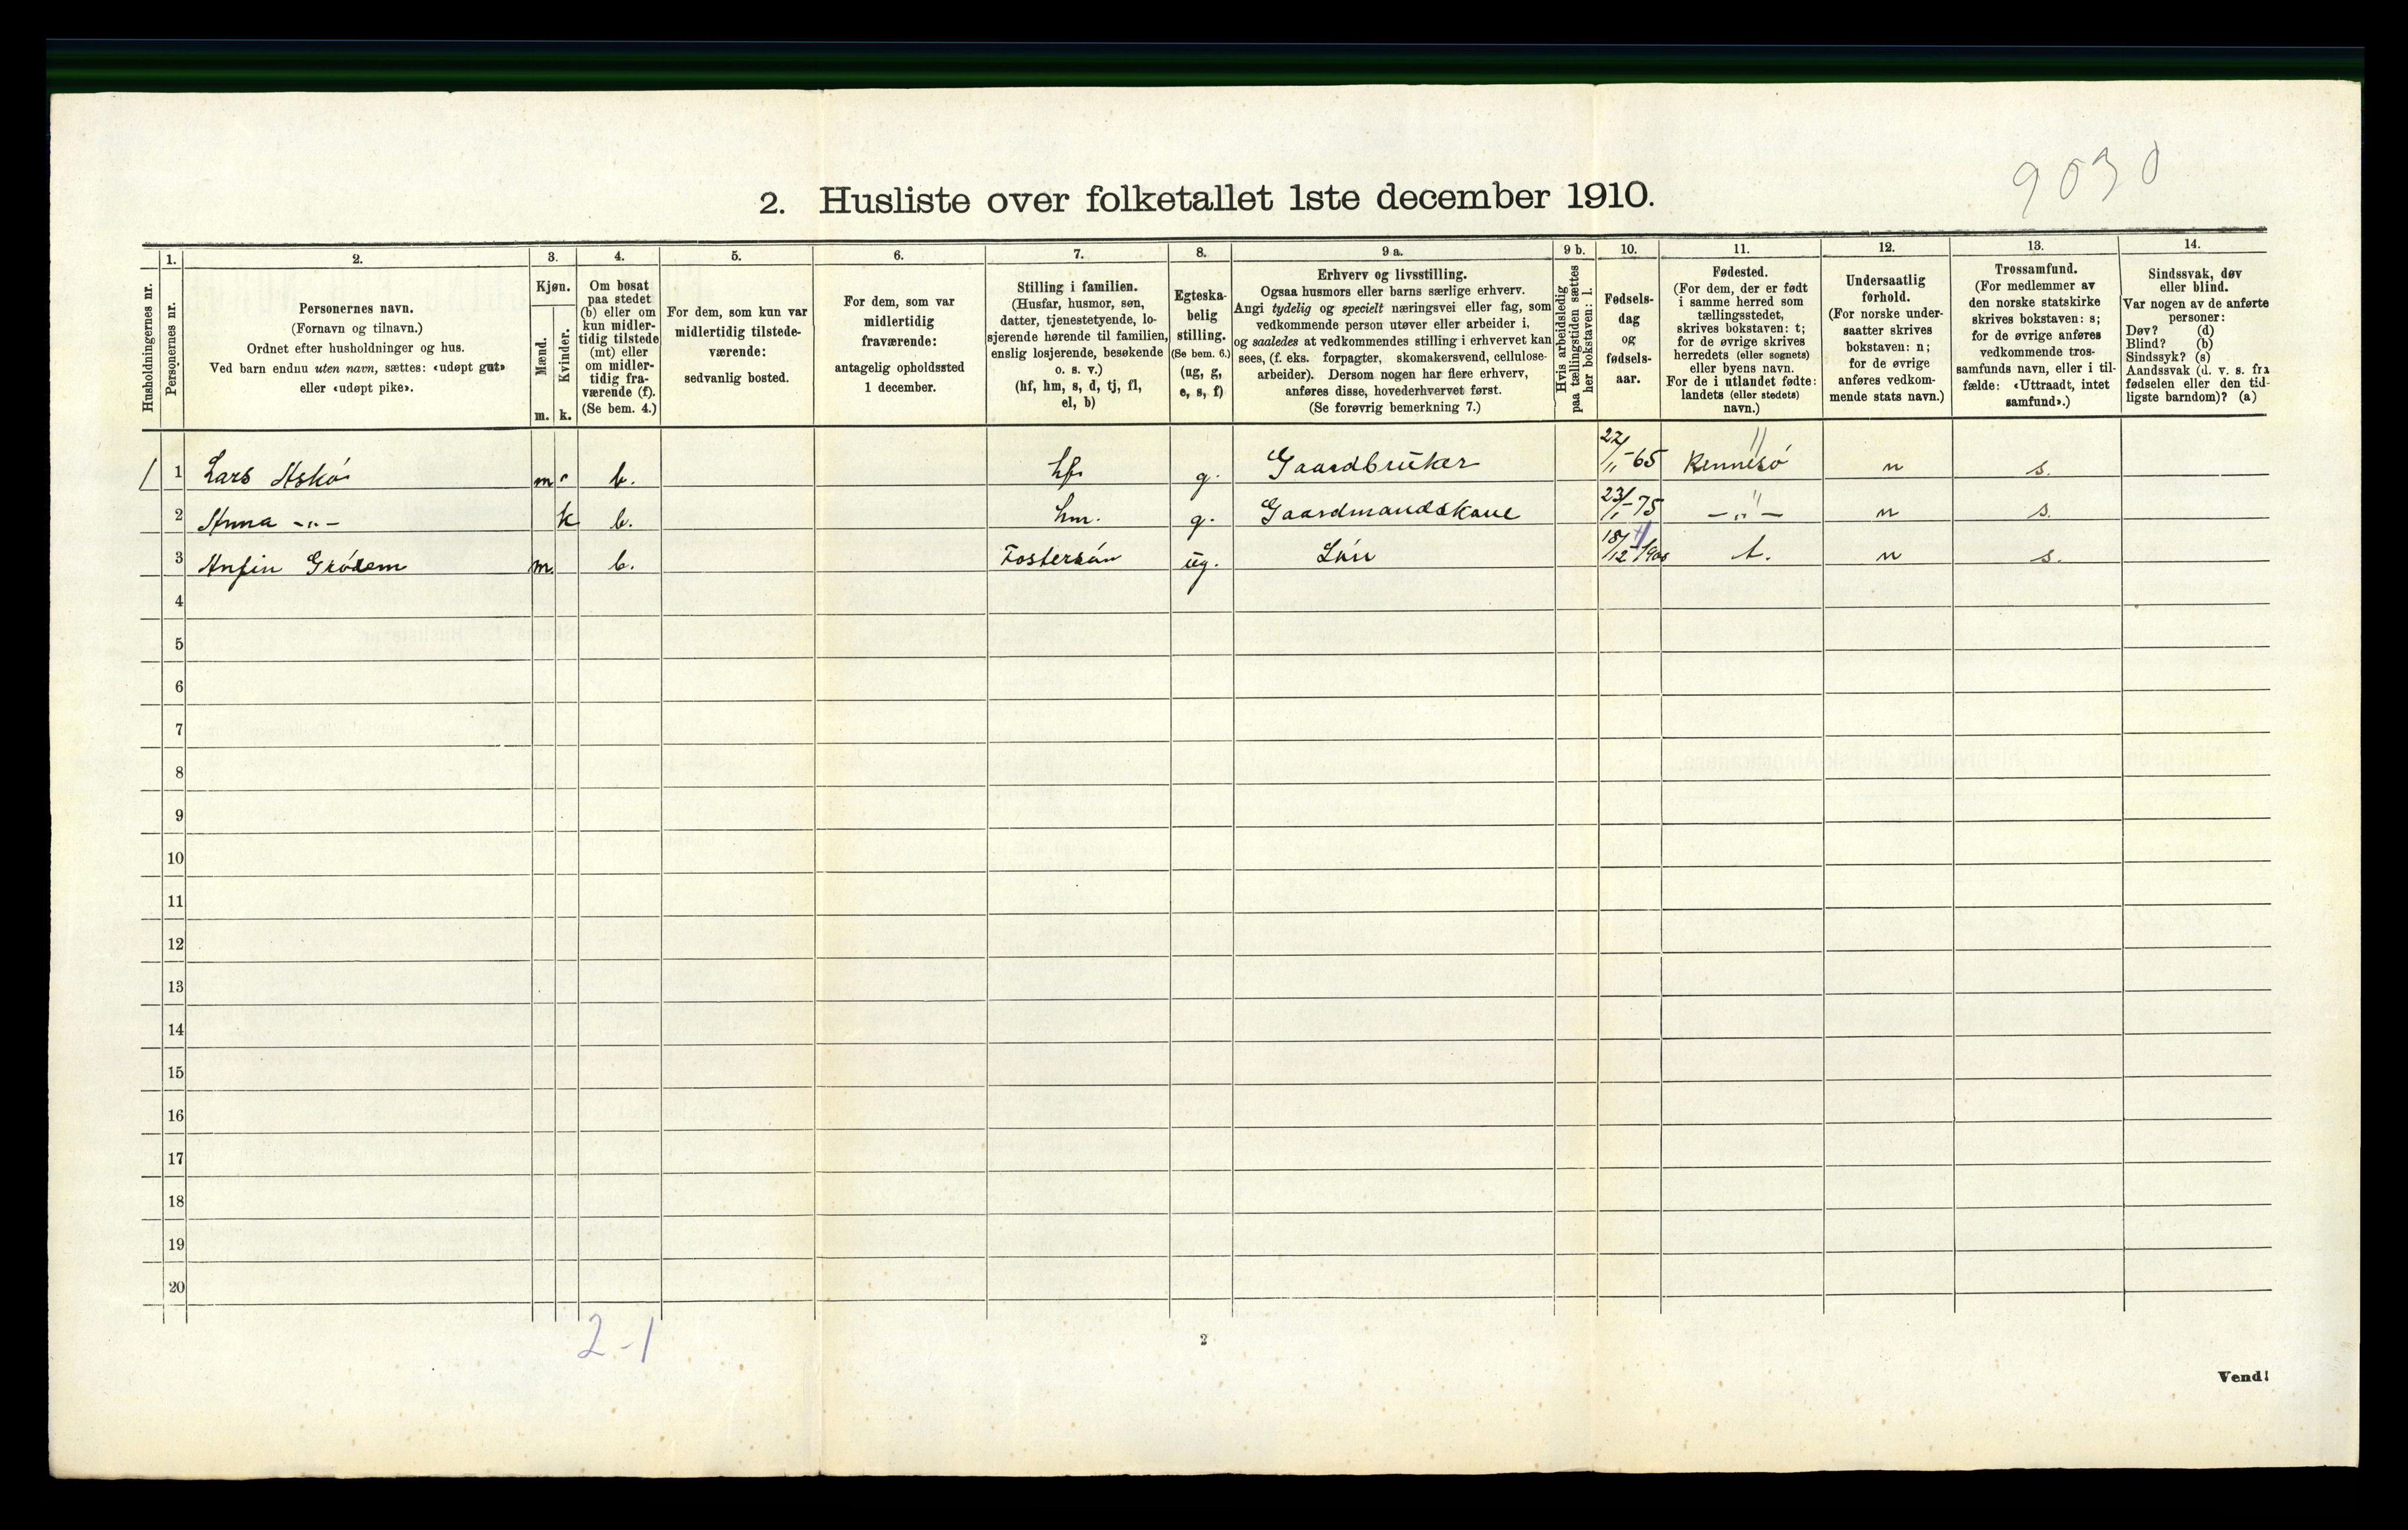 9030
2. Husliste over folketallet 1ste december 1910.
Husholdningernes nr.
1.
Personernes nr.
2.
Personernes navn.
(Fornavn og tilnavn.)
Ordnet efter husholdninger og hus.
Ved barn endnu uten navn, sættes: «udøpt gut»
eller «udøpt pike».
3.
Kjøn.
Mænd.
m.
Kvinder.
k.
4.
Om bosat
paa stedet
(b) eller om
kun midler-
tidig tilstede
(mt) eller
om midler-
tidig fra-
værende (f).
(Se bem. 4.)
5.
For dem, som kun var
midlertidig tilstede-
værende:
sedvanlig bosted.
6.
For dem, som var
midlertidig
fraværende:
antagelig opholdssted
1 december.
7.
Stilling i familien.
(Husfar, husmor, søn,
datter, tjenestetyende, lo-
sjerende hørende til familien,
enslig losjerende, besøkende
o. s. v.)
(hf, hm, s, d, tj, fl,
el, b)
8.
Egteska-
belig
stilling.
(Se bem. 6.)
(ug, g,
e, s, f)
9 a.
Erhverv og livsstilling.
Ogsaa husmors eller barns særlige erhverv.
Angi tydelig og specielt næringsvei eller fag, som
vedkommende person utøver eller arbeider i,
og saaledes at vedkommendes stilling i erhvervet kan
sees, (f. eks. forpagter, skomakersvend, cellulose-
arbeider). Dersom nogen har flere erhverv,
anføres disse, hovederhvervet først.
(Se forøvrig bemerkning 7.)
9 b.
Hvis arbeidsledig
paa tællingstiden sættes
her bokstaven: l.
10.
Fødsels-
dag
og
fødsels-
aar.
11.
Fødested.
(For dem, der er født
i samme herred som
tællingsstedet,
skrives bokstaven: t;
for de øvrige skrives
herredets (eller sognets)
eller byens navn.
For de i utlandet fødte:
landets (eller stedets)
navn.)
12.
Undersaatlig
forhold.
(For norske under-
saatter skrives
bokstaven: n;
for de øvrige
anføres vedkom-
mende stats navn.)
13.
Trossamfund.
(For medlemmer av
den norske statskirke
skrives bokstaven: s;
for de øvrige anføres
vedkommende tros-
samfunds navn, eller i til-
fælde: «Uttraadt, intet
samfund».)
14.
Sindssvak, døv
eller blind.
Var nogen av de anførte
personer:
Døv? (d)
Blind? (b)
Sindssyk? (s)
Aandssvak (d. v. s. fra
fødselen eller den tid-
ligste barndom)? (a)
1 Lars Askö m. b. hf. g. Gaardbruker 22/11-65 Rennesö n s.
2 Anna -"- k b. hm. g. Gaardmandskone 23/1-75 -"- n s.
3 Anfin Grödem m. b. Fostersön ug. Sön 18/12-1905 t. n s.
4
5
6
7
8
9
10
11
12
13
14
15
16
17
18
19
20
2-1
2
Vend!